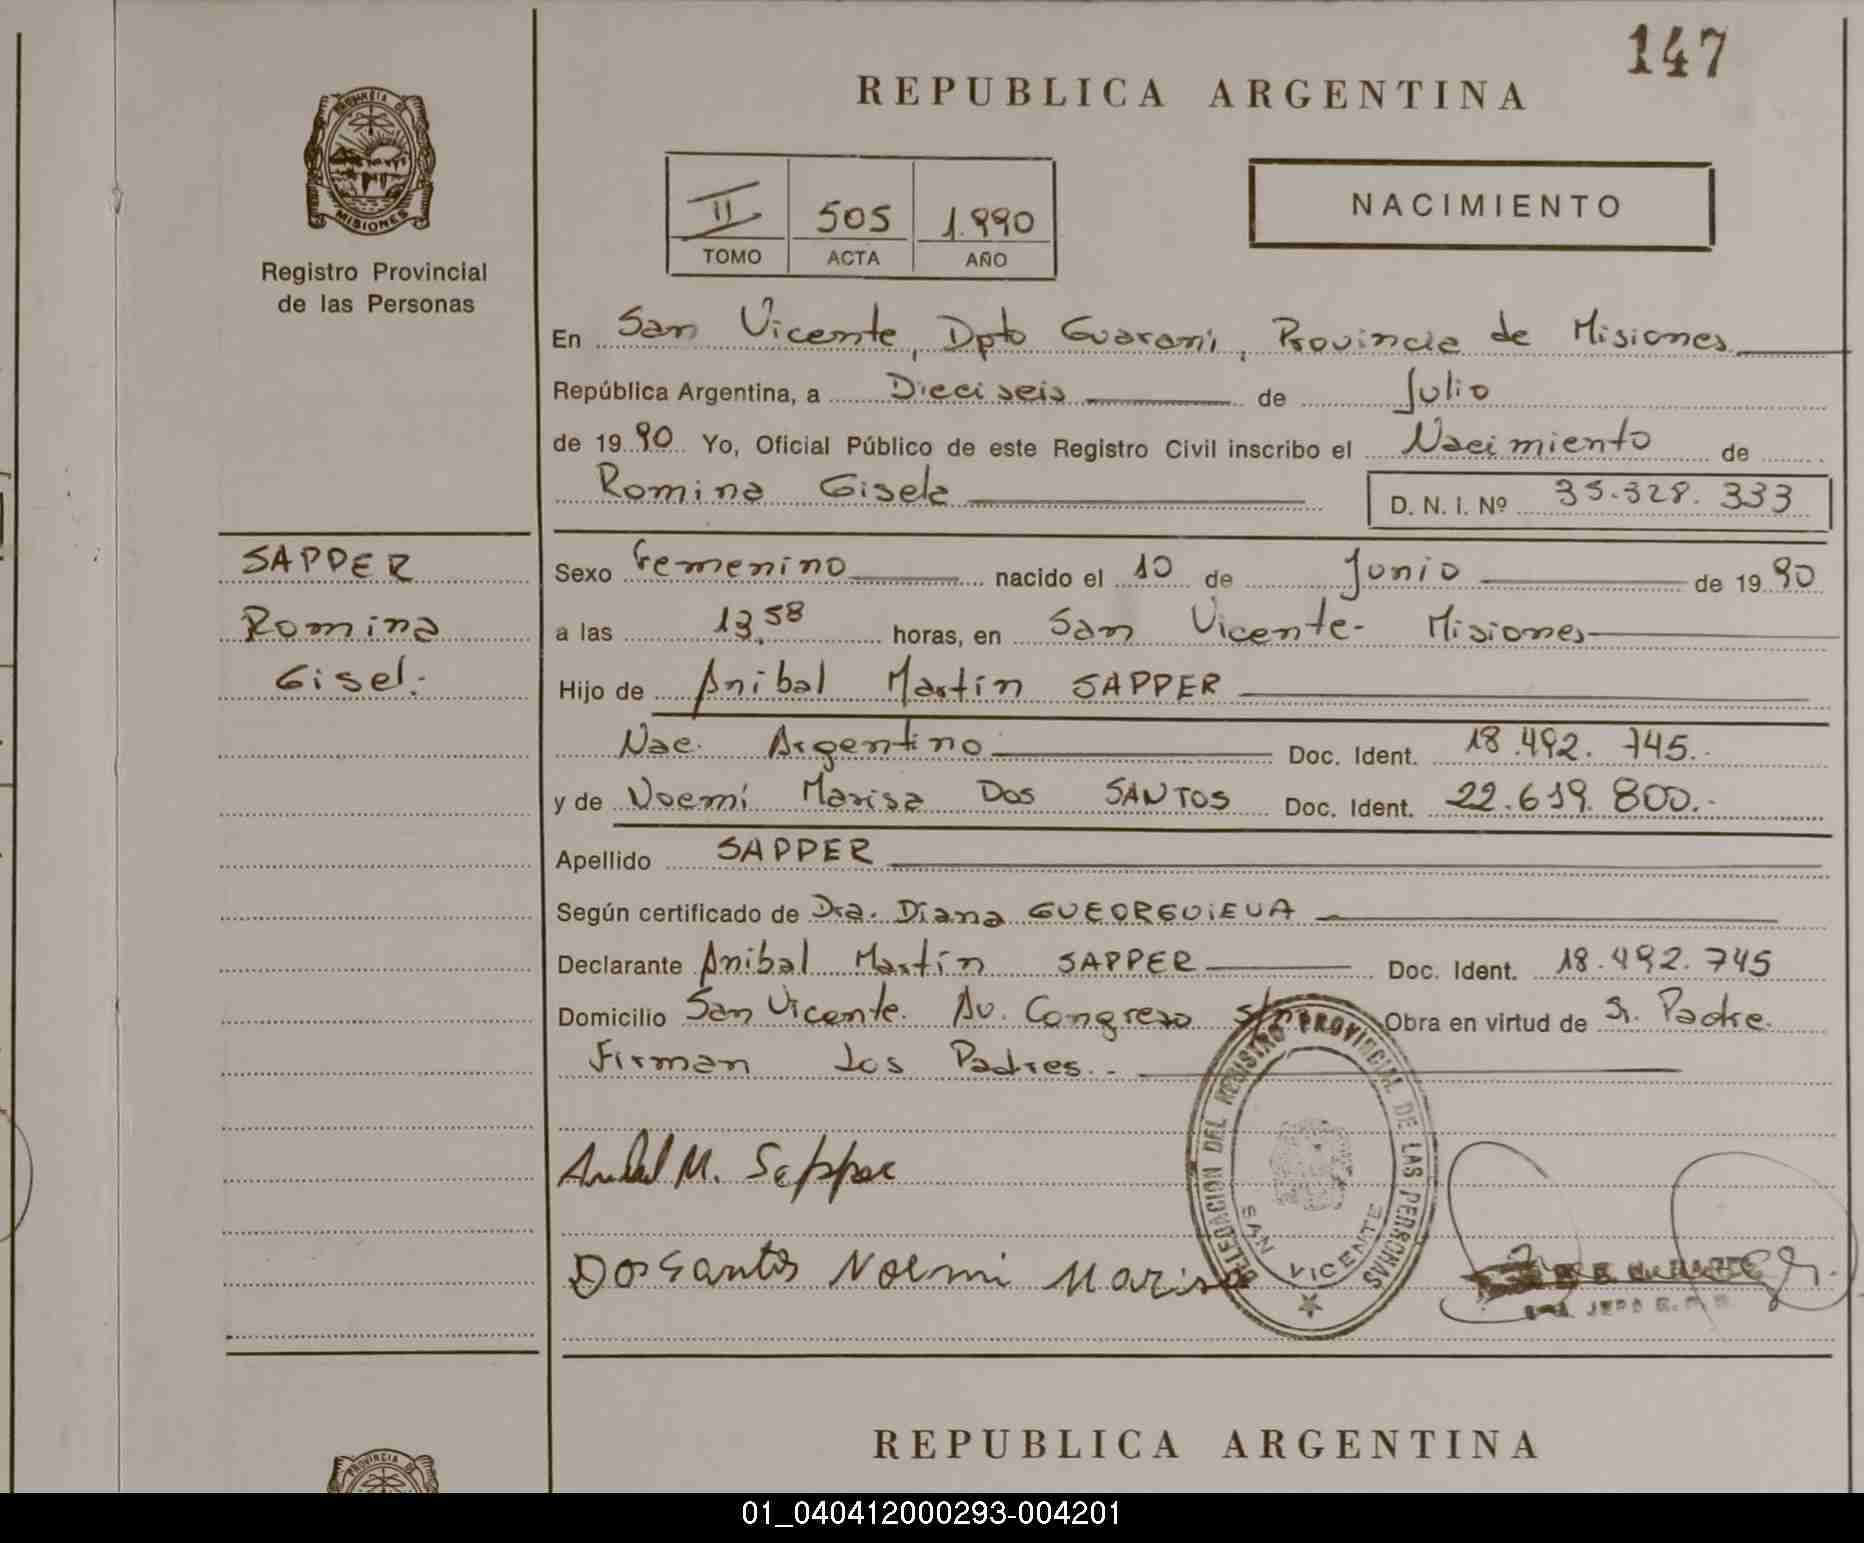 147
REPUBLICA ARGENTINA
PROVINCIA DE
MISIONES
Registro Provincial
de las Personas
II 505 1.990
TOMO ACTA AÑO
NACIMIENTO
En San Vicente, Dpto Guarani, Provincia de Misiones
República Argentina, a Dieciseis de Julio
de 1990 Yo, Oficial Público de este Registro Civil inscribo el Nacimiento de
Romina Gisela D. N. I. Nº 35.328.333
SAPPER
Romina
Gisel.
Sexo Femenino nacido el 10 de Junio de 1990
a las 13,58 horas, en San Vicente- Misiones
Hijo de Anibal Martín SAPPER
Nac. Argentino Doc. Ident. 18.492.745.-
y de Noemí Marisa DOS SANTOS Doc. Ident. 22.619.800.-
Apellido SAPPER
Según certificado de Dra. Diana GUEORGUIEVA
Declarante Anibal Martín SAPPER Doc. Ident. 18.492.745
Domicilio San Vicente. Av. Congreso s/n Obra en virtud de Sr. Padre.
Firman los Padres.-
Anibal M. Sapper
Dos Santos Noemi Marisa
DELEGACION DEL REGISTRO PROVINCIAL DE LAS PERSONAS
SAN VICENTE
REPUBLICA ARGENTINA
PROVINCIA DE
01_040412000293-004201